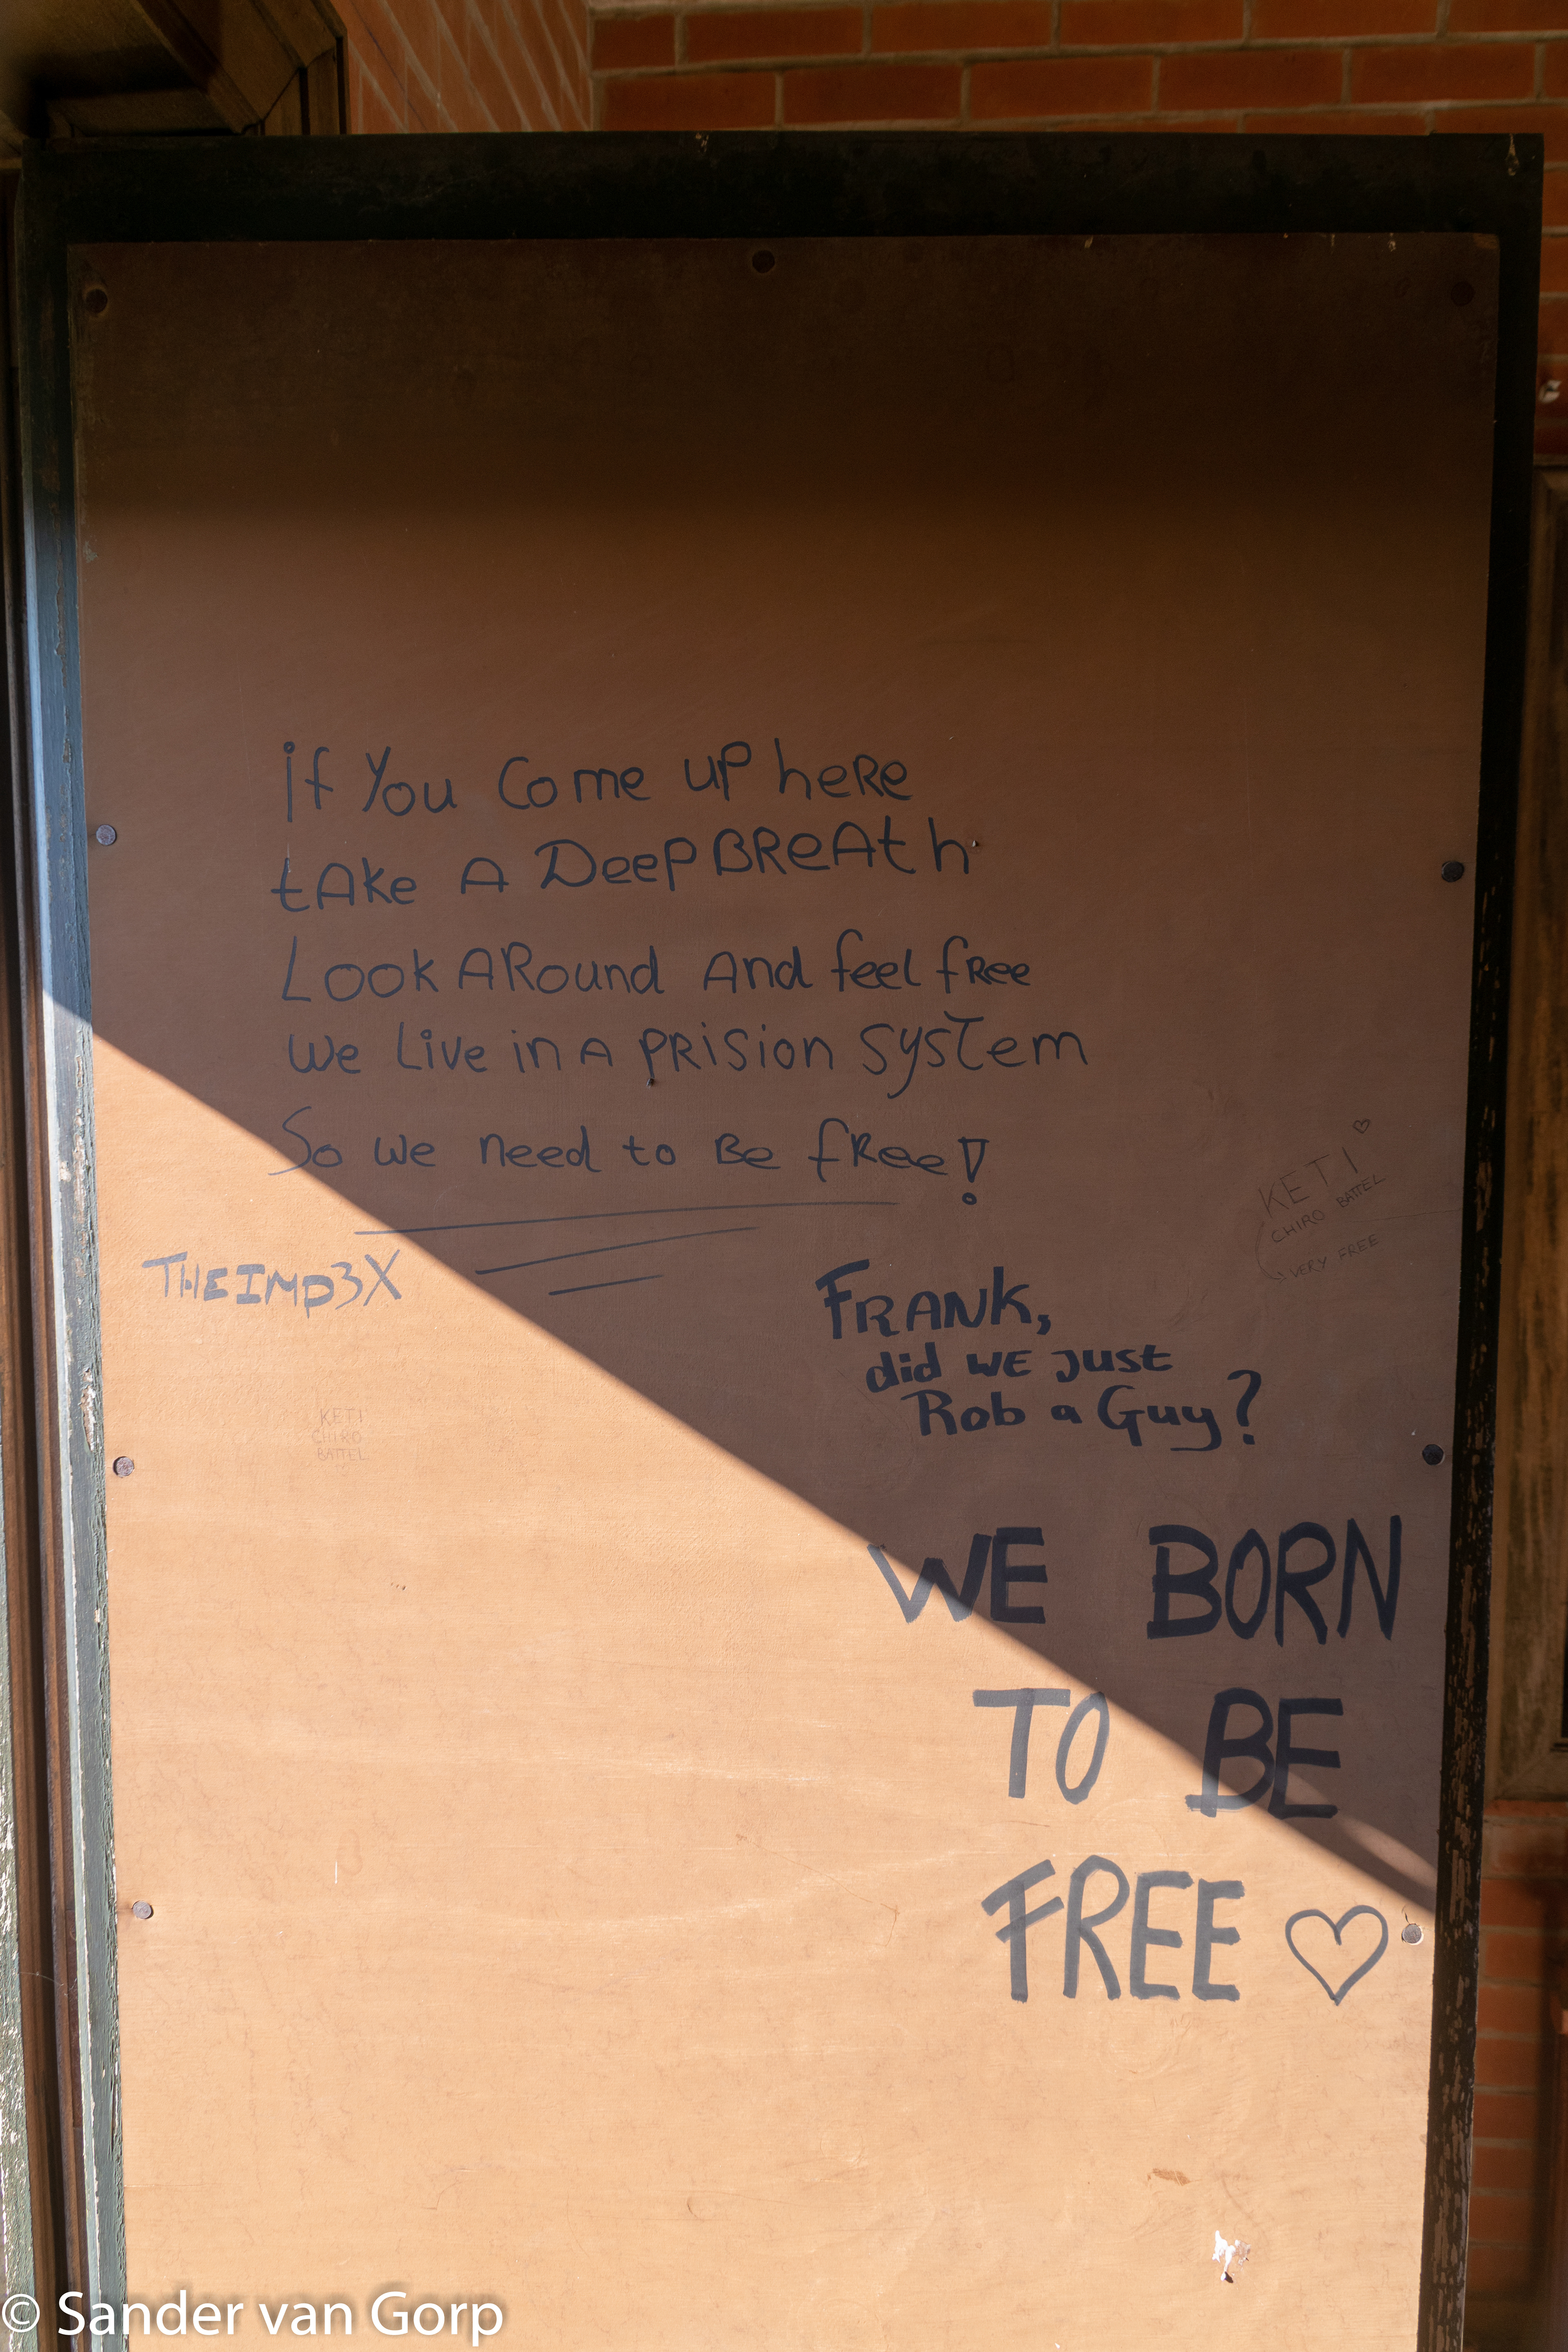 if You Come up here
tAke A Deep BReAth
Look ARound And feel fRee
We Live in A PRiSion SysTem
So we need to Be fRee!
THEIMP3X
KETI
CHIRO BATTEL
VERY FREE
FRANK,
did WE Just
Rob a Guy?
KETI
CHIRO
BATTEL
WE BORN
TO BE
FREE ♡
© Sander van Gorp